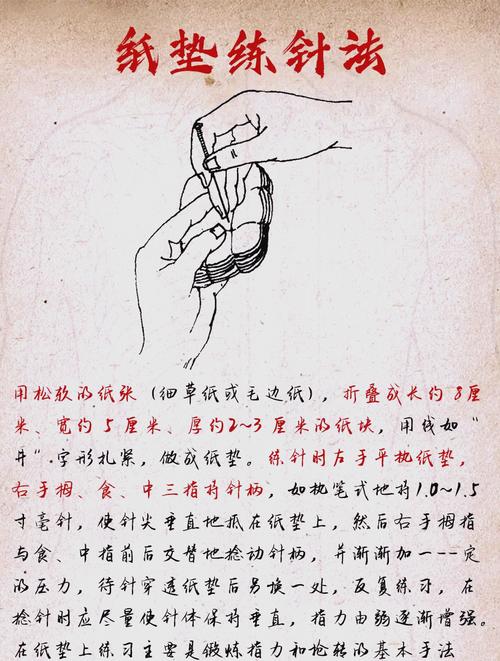 纸垫练针法
用松软的纸张（细草纸或毛边纸），折叠成长约8厘
米、宽约5厘米、厚约2~3厘米的纸块，用线如“
井”字形扎紧，做成纸垫。练针时左手平执纸垫，
右手拇、食、中三指持针柄，如执笔式地持1.0~1.5
寸毫针，使针尖垂直地抵在纸垫上，然后右手拇指
与食、中指前后交替地捻动针柄，并渐渐加一---定
的压力，待针穿透纸垫后另换一处，反复练习，在
捻针时应尽量使针体保持垂直，指力由弱逐渐增强。
在纸垫上练习主要是锻炼指力和捻转的基本手法